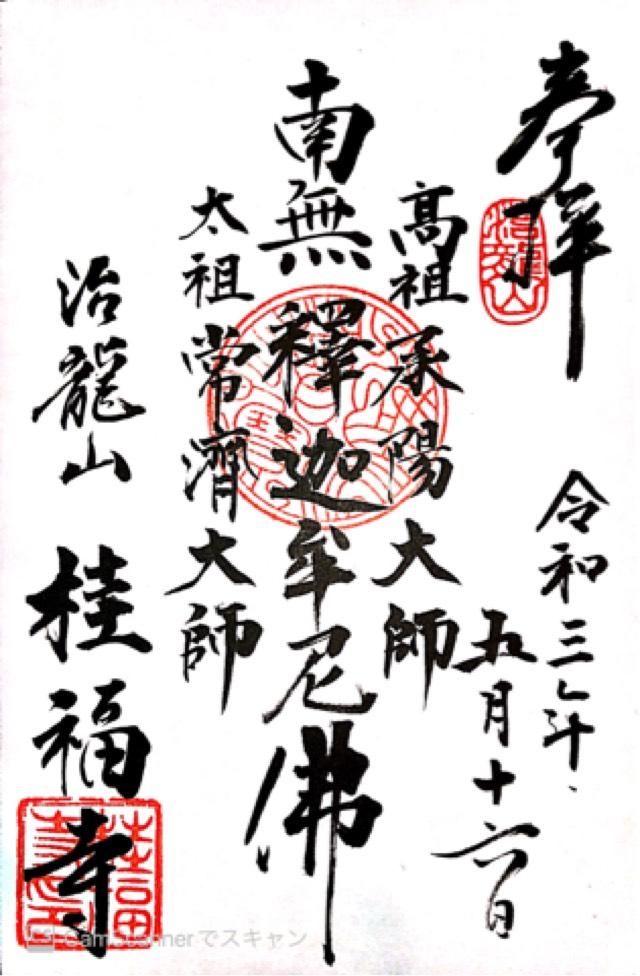 奉拝
治龍山
令和三年
五月十六日
高祖承陽大師
南無釋迦牟尼佛
太祖常濟大師
治龍山 桂福寺
CamScannerでスキャン